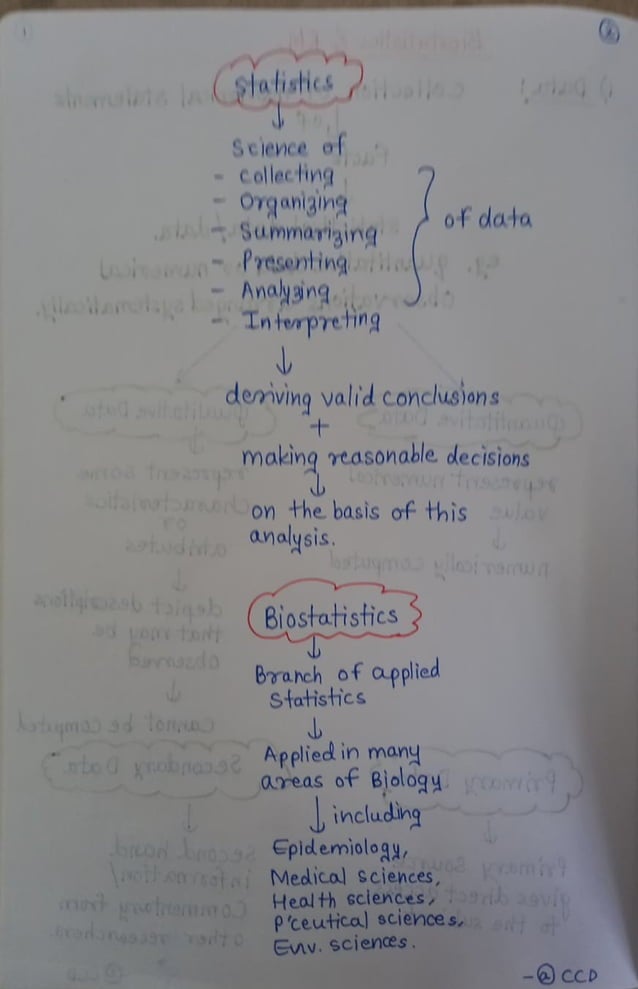 2
Statistics
↓
Science of
- collecting
- Organizing
- Summarizing
- Presenting
- Analyzing
- Interpreting
} of data
↓
deriving valid conclusions
+
making reasonable decisions
↓
on the basis of this
analysis.
Biostatistics
↓
Branch of applied
Statistics
↓
Applied in many
areas of Biology
↓ including
Epidemiology,
Medical sciences,
Health sciences,
P'ceutical sciences,
Env. sciences.
- @ CCD